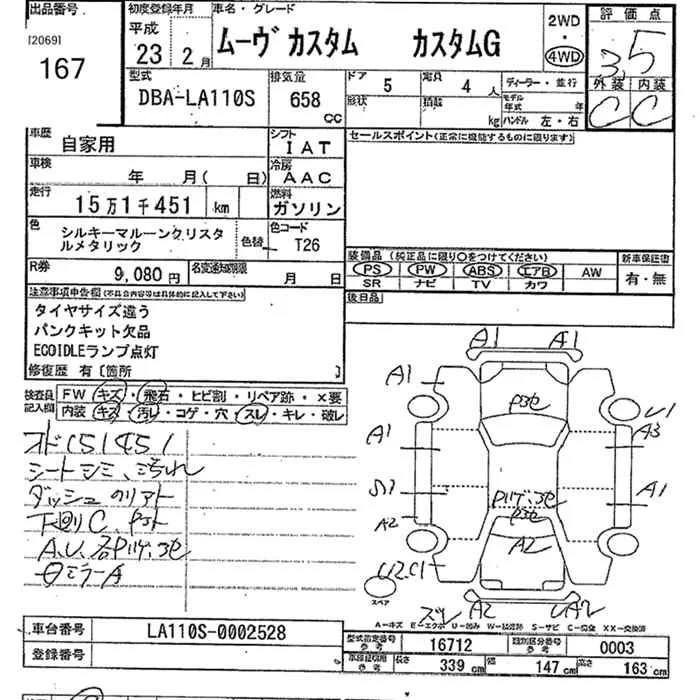 出品番号
[2069]
167
初度登録年月
平成
23 2月
車名・グレード
ムーヴ カスタム カスタムG
2WD
・
4WD
評価点
3.5
外装 内装
C C
型式
DBA-LA110S
排気量
658
CC
ドア
5
定員
4 人
形状
積載
kg
ディーラー・並行
モデル年式 年
ハンドル 左・右
車歴
自家用
シフト
IAT
車検
年 月( 日)
冷房
AAC
走行
15万1千451 km
燃料
ガソリン
色
シルキーマルーンクリスタルメタリック
色替
色コード
T26
R券
9,080円
名変通知期限
月 日
セールスポイント(正常に機能するものに限ります)
装備品 (純正品に限り○をつけてください)
PS PW ABS エアB AW
SR ナビ TV カワ
新車保証書
有・無
後日品
注意事項申告欄(不具合内容等は具体的に記入して下さい)
タイヤサイズ違う
パンクキット欠品
ECOIDLEランプ点灯
修復歴 有〔箇所 〕
検査員記入欄
FW キズ・飛石・ヒビ割・リペア跡・×要
内装 キズ・汚レ・コゲ・穴・スレ・キレ・破レ
オド151451
シートシミ、汚れ
ダッシュのリアト
下廻りC、
A.U.各
ミラーA
A1 A1
A1
U1
A1
A3
A1
A2
A2
U2.C1
スペア
ズレ A2
A-キズ E-エクボ U-凹み W-補修跡 S-サビ C-腐食 X-交換 XX-交換済
車台番号
LA110S-0002528
登録番号
型式指定番号
参考
16712
類別区分番号
参考
0003
車検証切用
参考
長さ
339 cm
幅
147 cm
高さ
163 cm